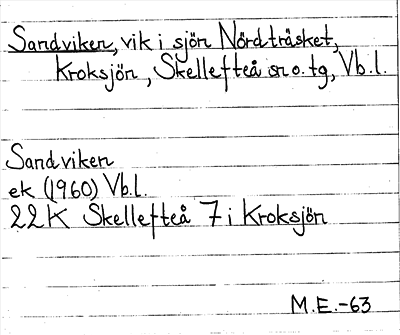 Sandviken, vik i sjön Nördträsket,
Kroksjön, Skellefteå sn o. tg, Vb. l.
Sandviken
ek (1960) Vb. l.
22K Skellefteå 7 i Kroksjön
M.E.-63